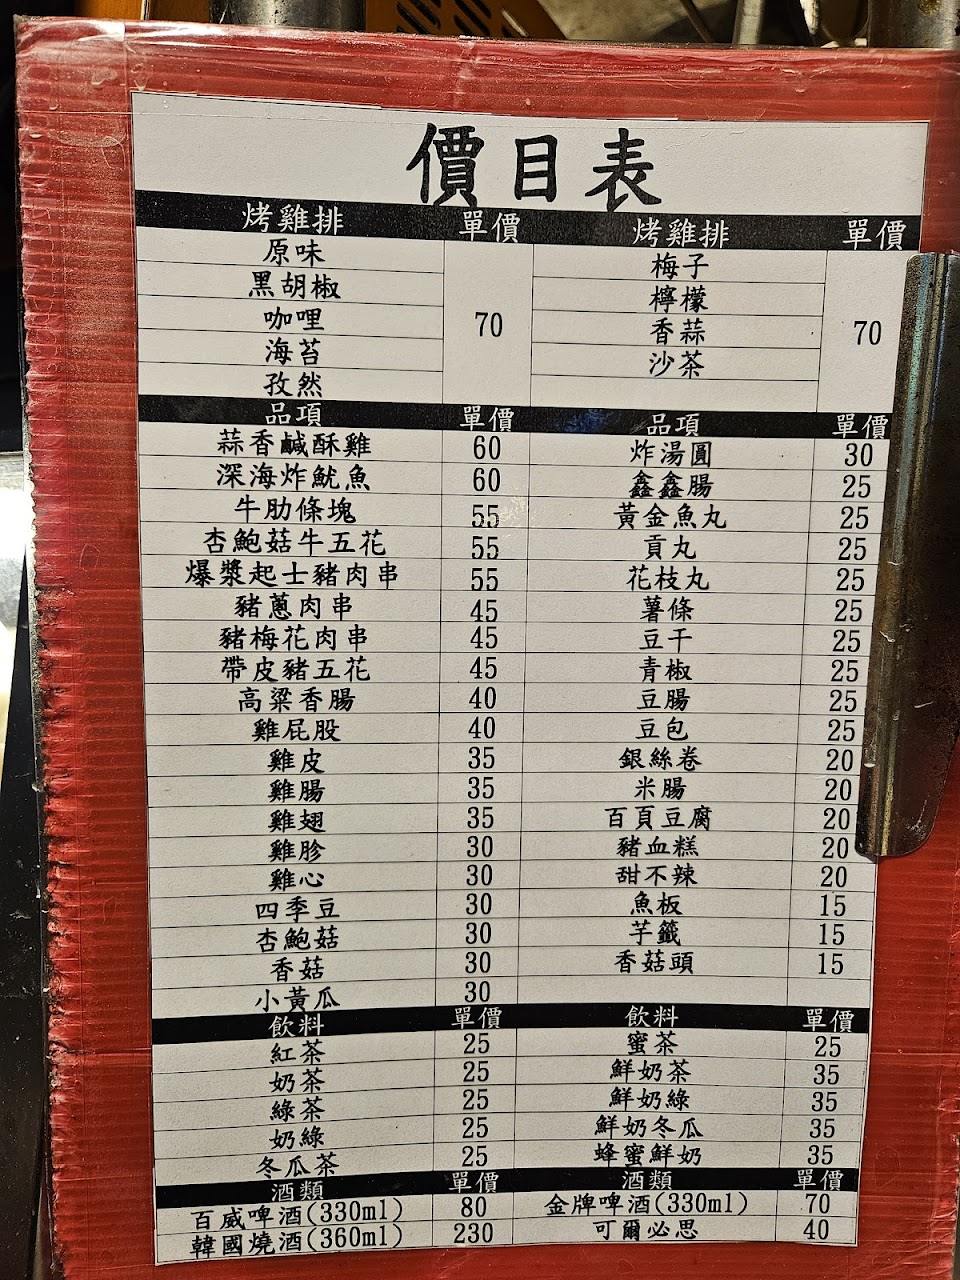 價目表
烤雞排 單價 烤雞排 單價
原味 梅子
黑胡椒 檸檬
咖哩 70 香蒜 70
海苔 沙茶
孜然
品項 單價 品項 單價
蒜香鹹酥雞 60 炸湯圓 30
深海炸魷魚 60 鑫鑫腸 25
牛肋條塊 55 黃金魚丸 25
杏鮑菇牛五花 55 貢丸 25
爆漿起士豬肉串 55 花枝丸 25
豬蔥肉串 45 薯條 25
豬梅花肉串 45 豆干 25
帶皮豬五花 45 青椒 25
高粱香腸 40 豆腸 25
雞屁股 40 豆包 25
雞皮 35 銀絲卷 20
雞腸 35 米腸 20
雞翅 35 百頁豆腐 20
雞胗 30 豬血糕 20
雞心 30 甜不辣 20
四季豆 30 魚板 15
杏鮑菇 30 芋籤 15
香菇 30 香菇頭 15
小黃瓜 30
飲料 單價 飲料 單價
紅茶 25 蜜茶 25
奶茶 25 鮮奶茶 35
綠茶 25 鮮奶綠 35
奶綠 25 鮮奶冬瓜 35
冬瓜茶 25 蜂蜜鮮奶 35
酒類 單價 酒類 單價
百威啤酒(330ml) 80 金牌啤酒(330ml) 70
韓國燒酒(360ml) 230 可爾必思 40